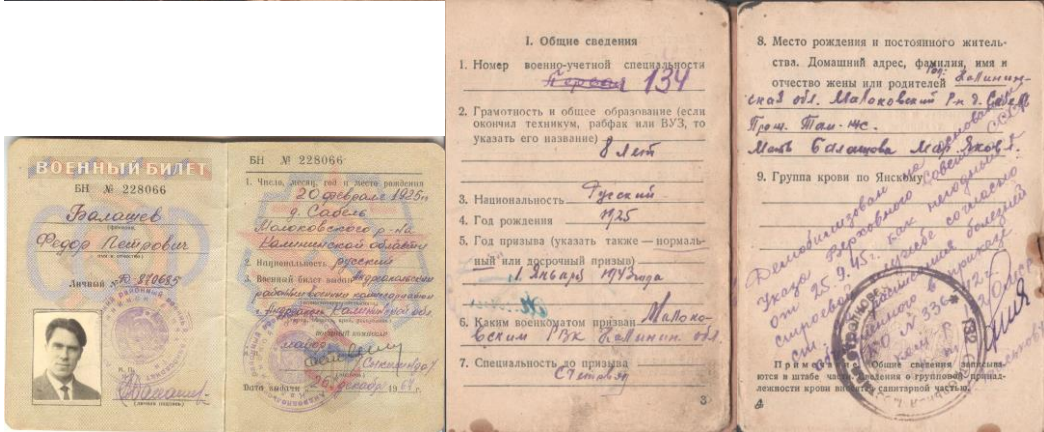 ВОЕННЫЙ БИЛЕТ
БН № 228066
Балашев
(фамилия,
Федор Петрович
имя и отчество)
Личный №
(личная подпись)
БН № 228066
1. Число, месяц, год и место рождения
20 февраля 1925г
д. Сабель
Молоковского р-на
Калининской области
2. Национальность русский
3. Военный билет выдан Андреапольским
районным военным комиссариатом
г. Андреаполь Калининской обл.
военный комиссар
майор
Дата выдачи 26 декабр 1968 г.
I. Общие сведения
1. Номер военно-учетной специальности
134
2. Грамотность и общее образование (если
окончил техникум, рабфак или ВУЗ, то
указать его название)
8 лет
3. Национальность Русский
4. Год рождения 1925
5. Год призыва (указать также — нормаль-
ный или досрочный призыв)
1 Января 1943 года
6. Каким военкоматом призван Малоко-
вским РВК Калинин. обл.
7. Специальность до призыва
3
8. Место рождения и постоянного житель-
ства. Домашний адрес, фамилия, имя и
отчество жены или родителей Калинин-
ская обл. Малоковский Р-н д.
Прож. Там-же.
Мать Балашова Мар. Яковл.
9. Группа крови по Янскому
Демобилизован на основании
Указа Верховного Совета СССР
от 25.9.45г. как негодный к
строевой службе согласно
расписания болезней
приказе
НКО № 336 42г.
Примечание. Общие сведения записыва-
ются в штабе части, сведения о групповой принад-
лежности крови вносятся санитарной частью.
4